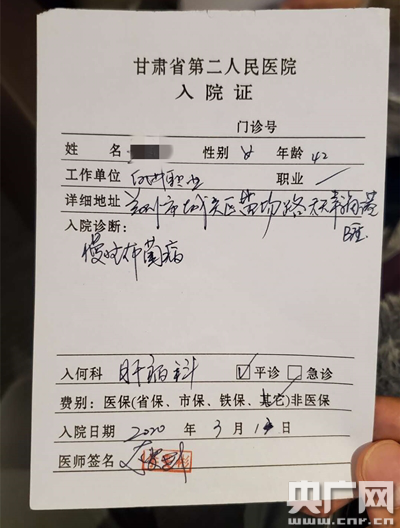 甘肃省第二人民医院
入院证
门诊号
姓名 性别 女 年龄 42
工作单位 职业 /
详细地址 兰州市城关区
入院诊断:
慢性布菌病
入何科 肝病科 ☑平诊 ☐急诊
费别:医保(省保、市保、铁保、其它)非医保
入院日期 2020 年 3 月 日
医师签名
央广网
www.cnr.cn